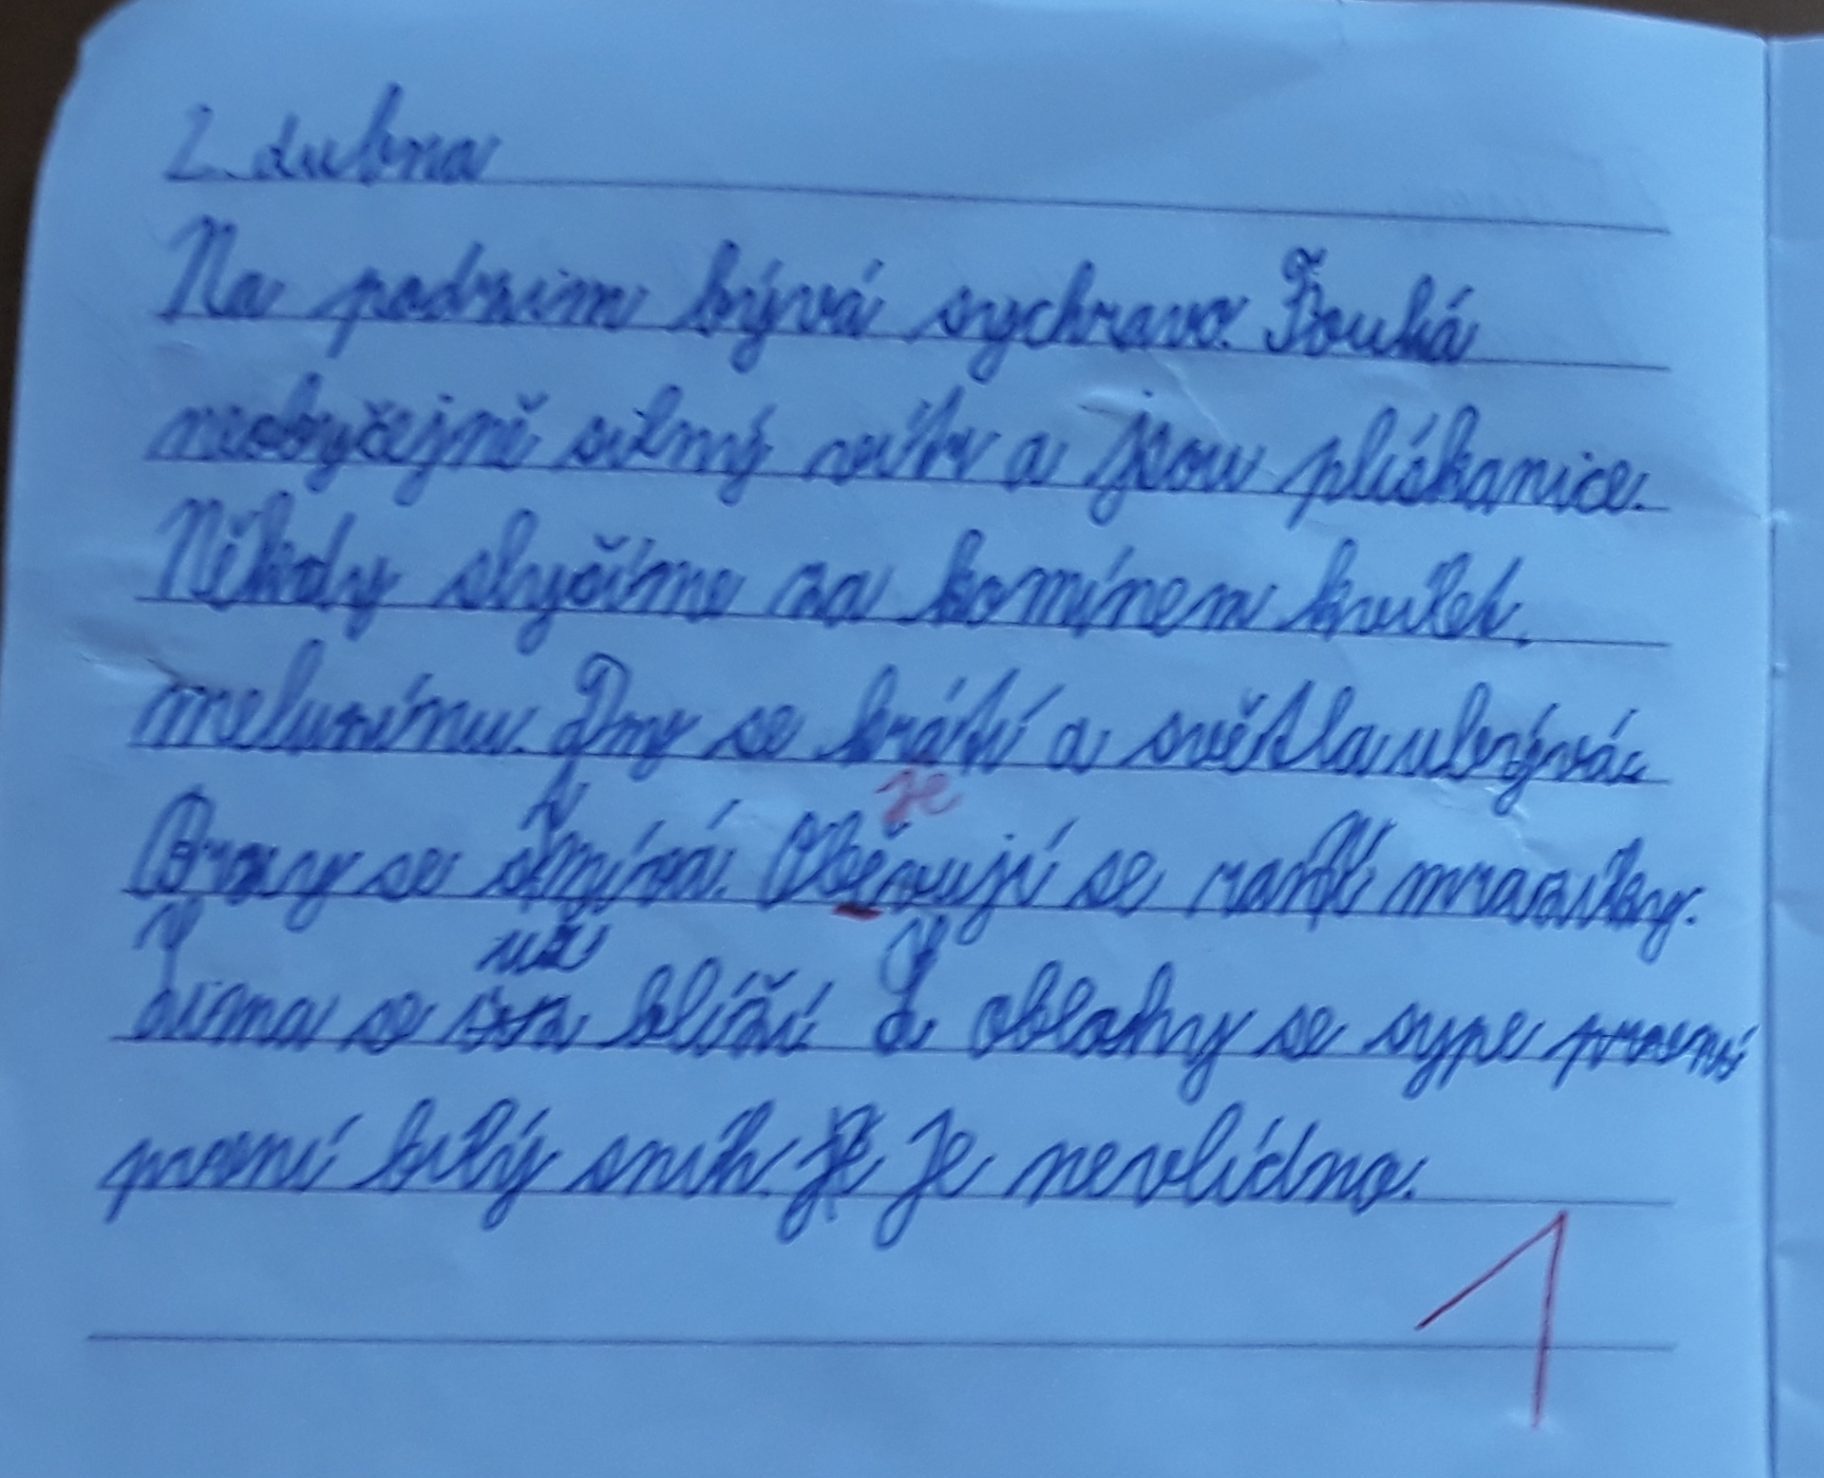 2. dubna
Na podzim bývá sychravo. Fouká
neobyčejně silný vítr a jsou plískanice.
Někdy slyšíme za komínem kvílet
meluzínu. Dny se krátí a světla ubývá.
Brzy se stmívá. Oběvují se ranní mrazíky.
je
Zima se už blíží. Z oblohy se sype první
první bílý sníh. Je nevlídno.
1